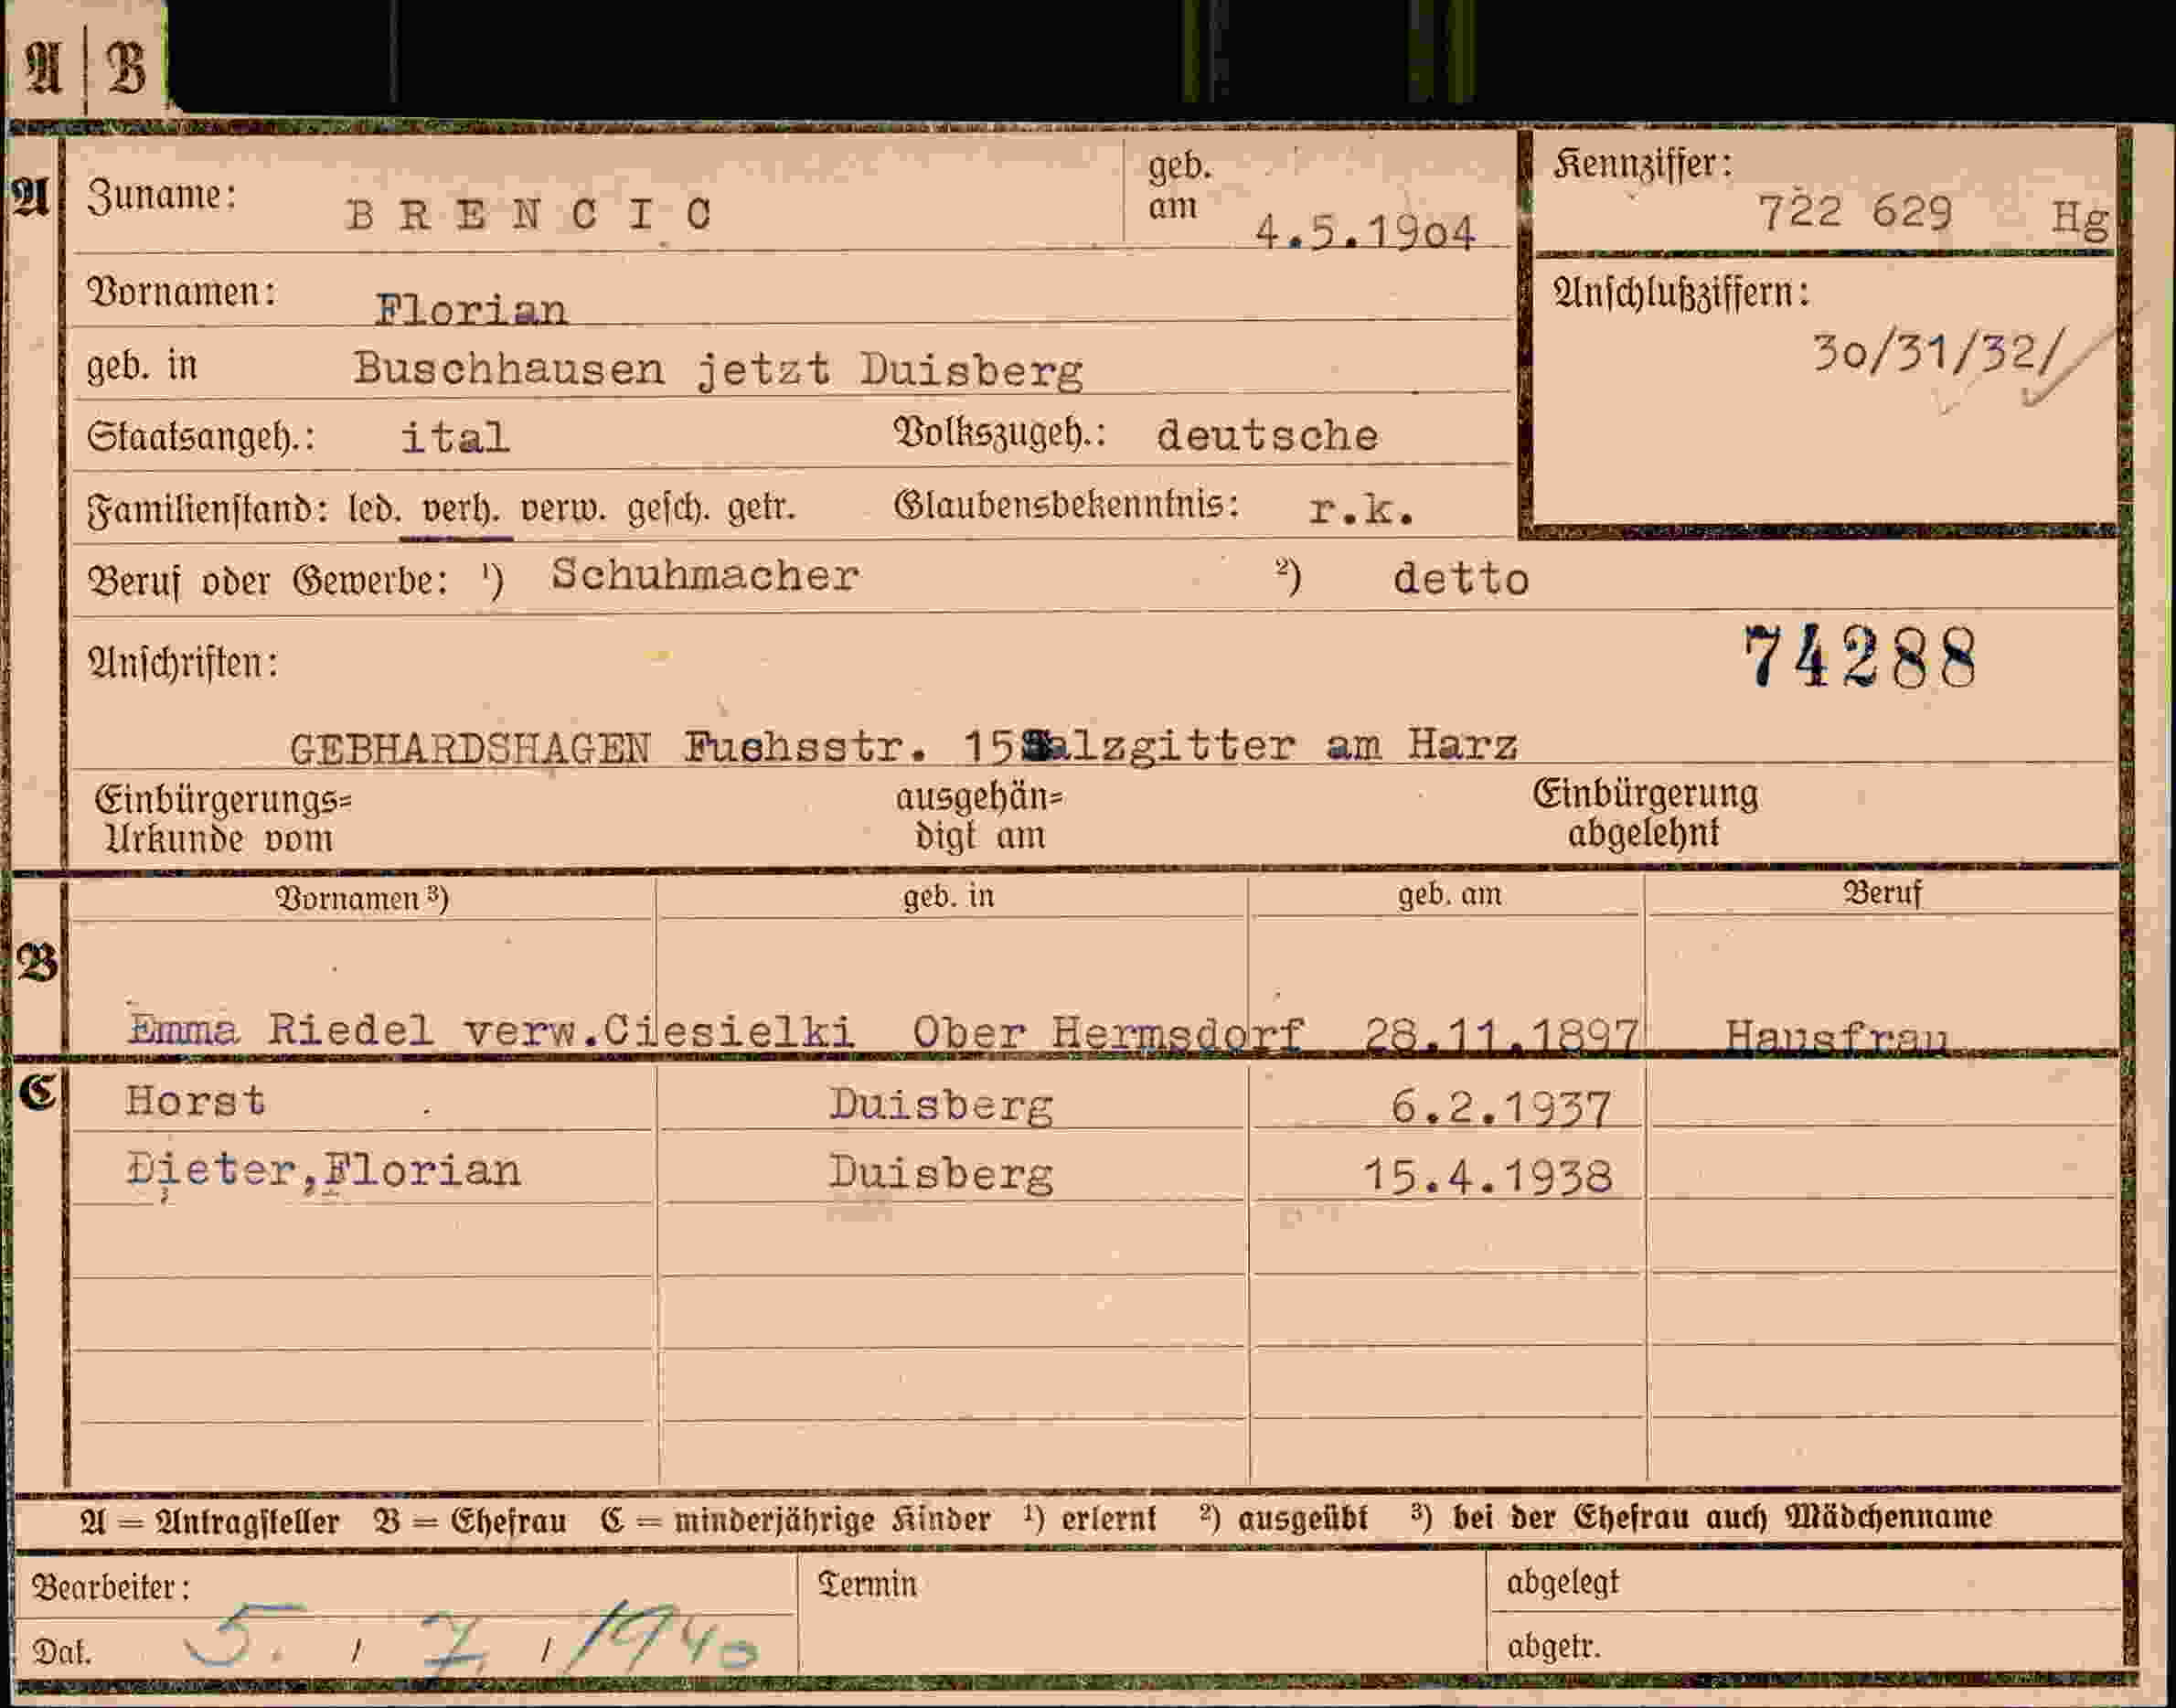 A | B
A Zuname: BRENCIC geb. am 4.5.1904 Kennziffer: 722 629 Hg
Vornamen: Florian Anschlußziffern: 30/31/32/
geb. in Buschhausen jetzt Duisberg
Staatsangeh.: ital Volkszugeh.: deutsche
Familienstand: led. verh. verw. gesch. getr. Glaubensbekenntnis: r.k.
Beruf oder Gewerbe: ¹) Schuhmacher ²) detto
Anschriften: 74288
GEBHARDSHAGEN Fuchsstr. 15 Salzgitter am Harz
Einbürgerungs= ausgehän= Einbürgerung
Urkunde vom digt am abgelehnt
Vornamen ³) geb. in geb. am Beruf
B
Emma Riedel verw.Ciesielki Ober Hermsdorf 28.11.1897 Hausfrau
C Horst Duisberg 6.2.1937
Dieter,Florian Duisberg 15.4.1938
A = Antragsteller B = Ehefrau C = minderjährige Kinder ¹) erlernt ²) ausgeübt ³) bei der Ehefrau auch Mädchenname
Bearbeiter: Termin abgelegt
Dat. 5. / 7. / 1940 abgetr.